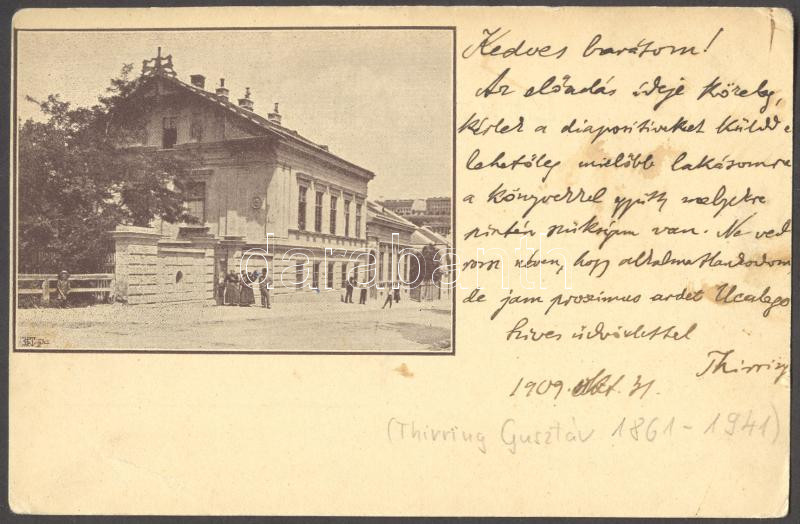 Kedves barátom!
Az előadás ideje közeleg,
kérlek a diapositiveket küldd e
lehetőleg mielőbb lakásomra
a könyvekkel együtt melyekre
szintén szükségem van. Ne ved
rossz néven, hogy alkalmatlankodom
de jam proximus ardet Ucalego
Szíves üdvözlettel
Thirring
1909. Okt. 31.
(Thirring Gusztáv 1861-1941)
darabanth